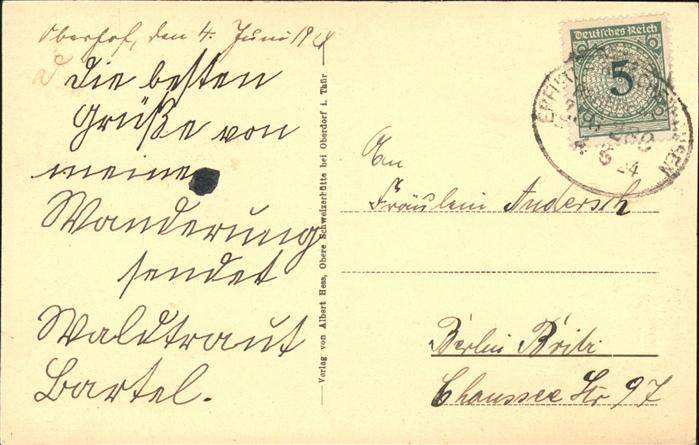 Oberhof, den 4. Juni 19
Die besten
Grüße von
meiner
Wanderung
sendet
Waldtraut
Bartel.
Verlag von Albert Hess, Obere Schweizerhütte bei Oberdorf i. Thür.
Deutsches Reich
5
24
An
Fräulein Andersch
Berlin Britz
Chaussee Str 97